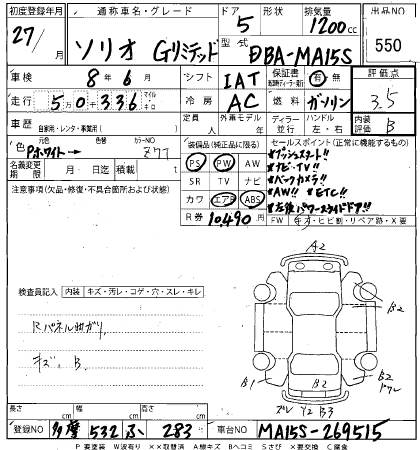 初度登録年月 通称車名・グレード ドア 形状 排気量 出品NO
27/ 月 ソリオ Gリミテッド 5 1200cc 550
型式 DBA-MA15S
車検 8年6月 シフト IAT 保証書 有 無 評価点
走行 50336 マイル キロ 冷房 AC 燃料 ガソリン 3.5
車歴 自家用・レンタ・事業用( ) 定員 人 外車モデル年 ディラー 並行 ハンドル 左・右 内装評価 B
色 元色 Pホワイト→ 色替 カラーNO Z7T 装備品(純正品に限る) セールスポイント(正常に機能するもの)
名義変更期限 月 日迄 積載 t PS PW AW プッシュスタート!!
注意事項(欠品・修復・不具合箇所および状態) SR TV ナビ ナビ・TV!!
カワ エアB ABS バックカメラ!!
AW!! ETC!!
左後パワースライドドア!!
R券 10,490円 FW キズ・ヒビ割・リペア跡・X要
検査員記入 内装 キズ・汚レ・コゲ・穴・スレ・キレ
Rパネル曲ガリ
キズ、B
A2
B2
B1
B2
B2
ズレ Y2 B3
長さ cm 幅 cm 高さ cm
登録NO 多摩 532 283 車台NO MA15S-269515
P 要塗装 W波有り ××取替済 A線キズ Bヘコミ Sさび X要交換 C腐食